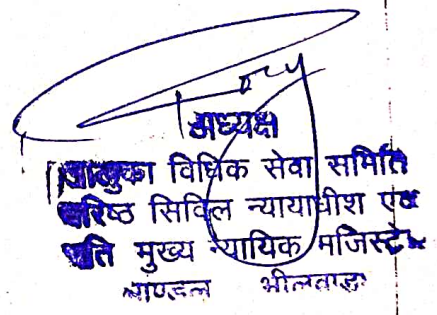 अध्यक्ष
तालुका विधिक सेवा समिति
वरिष्ठ सिविल न्यायाधीश एवं
अति मुख्य न्यायिक मजिस्ट्रेट
माण्डल भीलवाड़ा